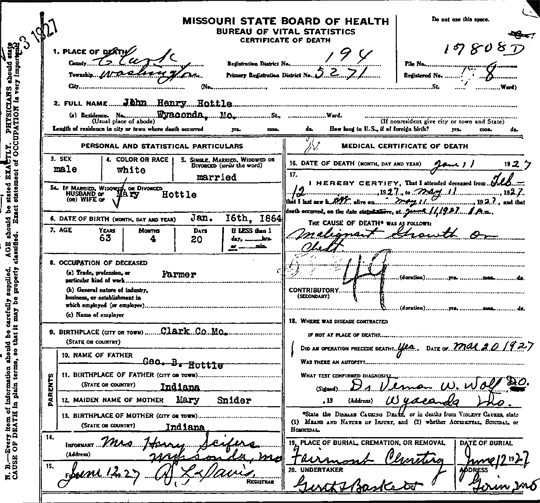 MISSOURI STATE BOARD OF HEALTH
BUREAU OF VITAL STATISTICS
CERTIFICATE OF DEATH
Do not use this space.
17808D
1. PLACE OF DEATH
County Clark
Registration District No. 194
File No.
Township Washington
Primary Registration District No. 5271
Registered No. 8
City (No. St. Ward)
2. FULL NAME John Henry Hottle
(a) Residence. No. Wyaconda, Mo. St., Ward.
(Usual place of abode) (If nonresident give city or town and State)
Length of residence in city or town where death occurred yrs. mos. ds. How long in U.S., if of foreign birth? yrs. mos. ds.
PERSONAL AND STATISTICAL PARTICULARS
3. SEX
male
4. COLOR OR RACE
white
5. SINGLE, MARRIED, WIDOWED OR DIVORCED (write the word)
married
5a. IF MARRIED, WIDOWED, OR DIVORCED
HUSBAND OF
(OR) WIFE OF Mary Hottle
6. DATE OF BIRTH (MONTH, DAY AND YEAR) Jan. 16th, 1864
7. AGE YEARS MONTHS DAYS If LESS than 1
day, hrs.
or min.
63 4 20
8. OCCUPATION OF DECEASED
(a) Trade, profession, or
particular kind of work Farmer
(b) General nature of industry,
business, or establishment in
which employed (or employer)
(c) Name of employer
9. BIRTHPLACE (CITY OR TOWN) Clark Co Mo.
(STATE OR COUNTRY)
PARENTS
10. NAME OF FATHER
Geo. B. Hottle
11. BIRTHPLACE OF FATHER (CITY OR TOWN)
(STATE OR COUNTRY) Indiana
12. MAIDEN NAME OF MOTHER Mary Snider
13. BIRTHPLACE OF MOTHER (CITY OR TOWN)
(STATE OR COUNTRY) Indiana
14.
INFORMANT Mrs Harry Seifers
(Address) Wyaconda, Mo
15.
June 12 27 A. L. Davis
REGISTRAR
MEDICAL CERTIFICATE OF DEATH
16. DATE OF DEATH (MONTH, DAY AND YEAR) June 11 1927
17.
I HEREBY CERTIFY, That I attended deceased from Feb
12, 1927, to May 11, 1927
that I saw alive on May 11, 1927, and that
death occurred, on the date at June 11, 1927
THE CAUSE OF DEATH* WAS AS FOLLOWS:
Malignant Growth on
Chest
49
(duration) yrs. mos. ds.
CONTRIBUTORY
(SECONDARY)
(duration) yrs. mos. ds.
18. WHERE WAS DISEASE CONTRACTED
IF NOT AT PLACE OF DEATH?
DID AN OPERATION PRECEDE DEATH? Yes. DATE OF Mar 20 1927
WAS THERE AN AUTOPSY?
WHAT TEST CONFIRMED DIAGNOSIS?
(Signed) Dr Vernon W. Wolf D.O.
, 19 (Address) Wyaconda Mo.
*State the DISEASE CAUSING DEATH, or in deaths from VIOLENT CAUSES, state
(1) MEANS AND NATURE OF INJURY, and (2) whether ACCIDENTAL, SUICIDAL, or
HOMICIDAL.
19. PLACE OF BURIAL, CREMATION, OR REMOVAL
DATE OF BURIAL
Fairmont Cemetry June 12 1927
20. UNDERTAKER
ADDRESS
Gorin Mo
N. B.—Every item of information should be carefully supplied. AGE should be stated EXACTLY. PHYSICIANS should state
CAUSE OF DEATH in plain terms, so that it may be properly classified. Exact statement of OCCUPATION is very important.